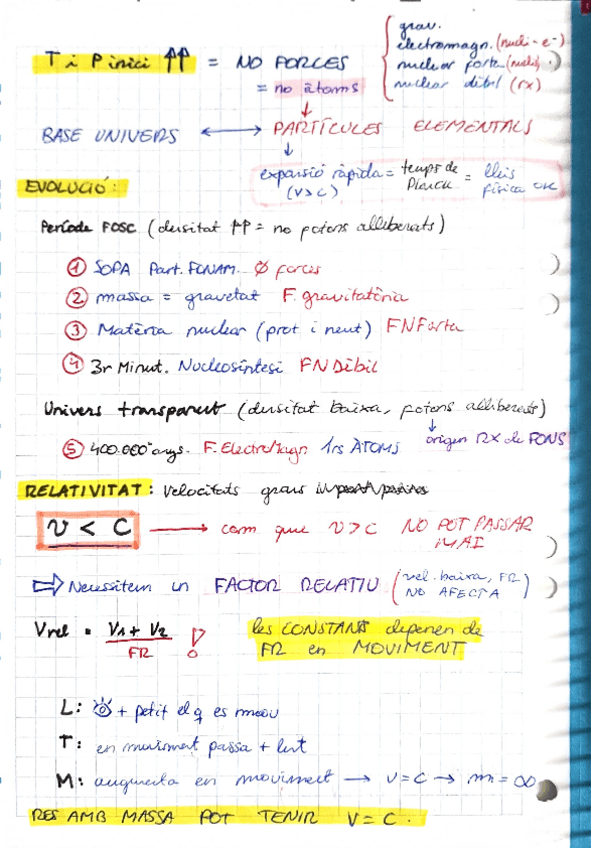 T i P inici ↑↑ = NO FORCES
= no àtoms
{ grav.
electromagn. (nucli - e-)
nuclear forta (nucli)
nuclear dèbil (rx)
BASE UNIVERS ↔ PARTÍCULES ELEMENTALS
expansió ràpida = temps de Planck = lleis física ok
(v>c)
EVOLUCIÓ:
Període FOSC (densitat ↑↑ = no fotons alliberats)
① SOPA Part. FONAM. Ø forces
② massa = gravetat F. gravitatòria
③ Matèria nuclear (prot i neut) FNForta
④ 3r Minut. Nucleosíntesi FNDèbil
Univers transparent (densitat baixa, fotons alliberats)
↓
⑤ 400.000 anys. F. ElectroMagn 1rs ÀTOMS origen RX de FONS
RELATIVITAT: velocitats grans
v < c → com que v>c NO POT PASSAR MAI
⇒ Necessitem un FACTOR RELATIU (vel. baixa, FR NO AFECTA)
Vrel = V1 + V2 / FR !
les CONSTANTS depenen de FR en MOVIMENT
L: + petit el q es mou
T: en moviment passa + lent
M: augmenta en moviment → v=c → m = ∞
RES AMB MASSA POT TENIR V = C.